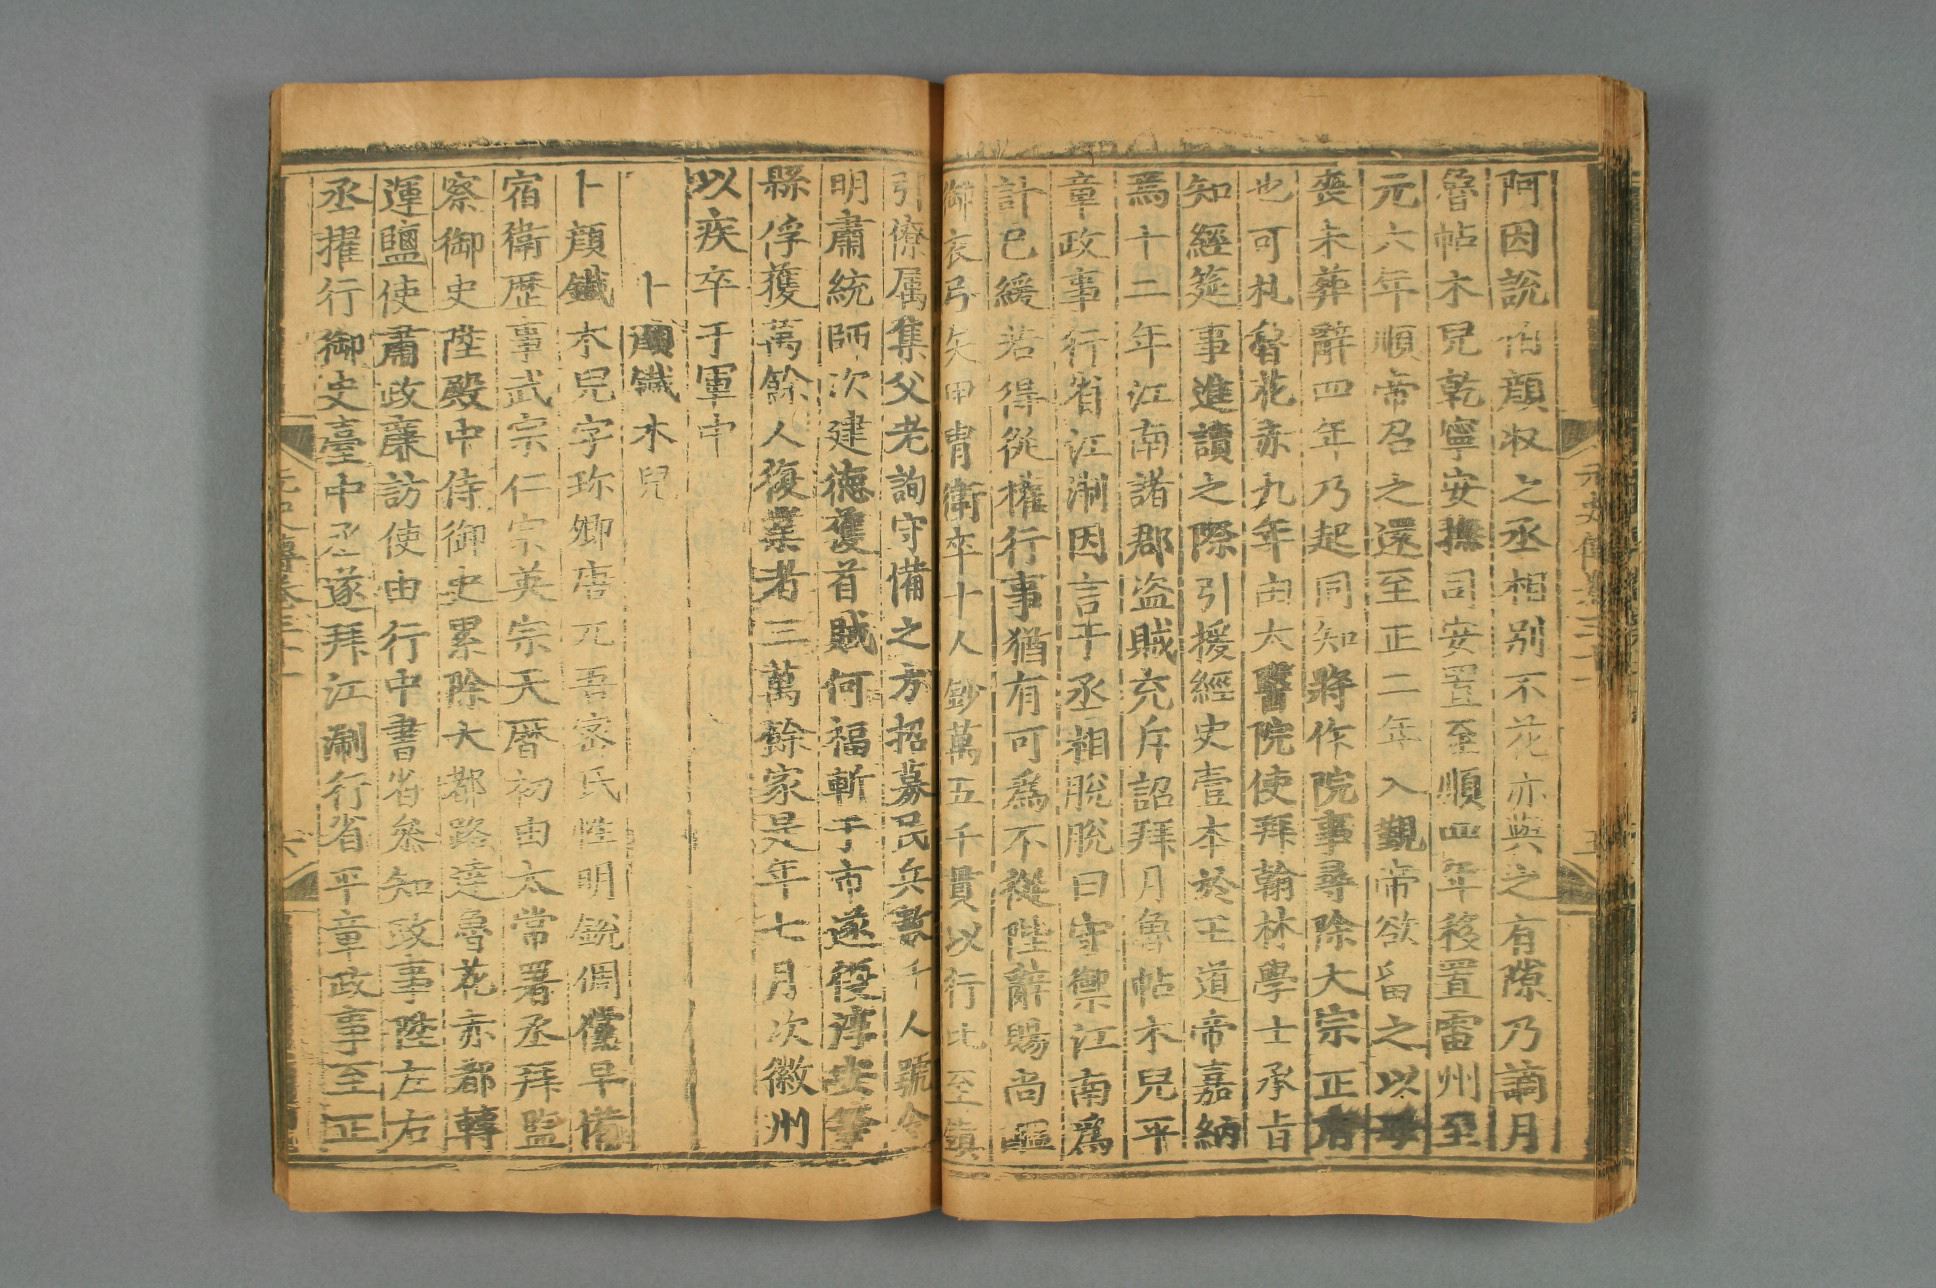 阿因說伯顏叔之丞相别不花亦與之有隙乃謫月
魯帖木兒乾寧安撫司安置至順四年移置雷州至
元六年順帝召之還至正二年入覲帝欲留之以母
喪未葬辭四年乃起同知將作院事尋除大宗正府
也可札魯花赤九年由太醫院使拜翰林學士承旨
知經筵事進讀之際引援經史壹本於王道帝嘉納
焉十二年江南諸郡盜賊充斥詔拜月魯帖木兒平
章政事行省江淛因言于丞相脫脫曰守禦江南爲
計已緩若得從權行事猶有可爲不從陛辭賜尚醞
御衣弓矢甲冑衛卒十人鈔萬五千貫以行比至鎮
引僚属集父老詢守備之方招募民兵數千人號令
明肅統師次建德獲首賊何福斬于市遂復淳安等
縣俘獲萬餘人復業者三萬餘家是年七月次徽州
以疾卒于軍中
卜顏鐵木兒
卜顏鐵木兒字珎卿唐兀吾密氏性明銳倜儻早備
宿衛歷事武宗仁宗英宗天曆初由太常署丞拜監
察御史陞殿中侍御史累除大都路達魯花赤都轉
運鹽使肅政廉訪使由行中書省叅知政事陞左右
丞擢行御史臺中丞遂拜江淛行省平章政事至正
元史傳卷三十一
六